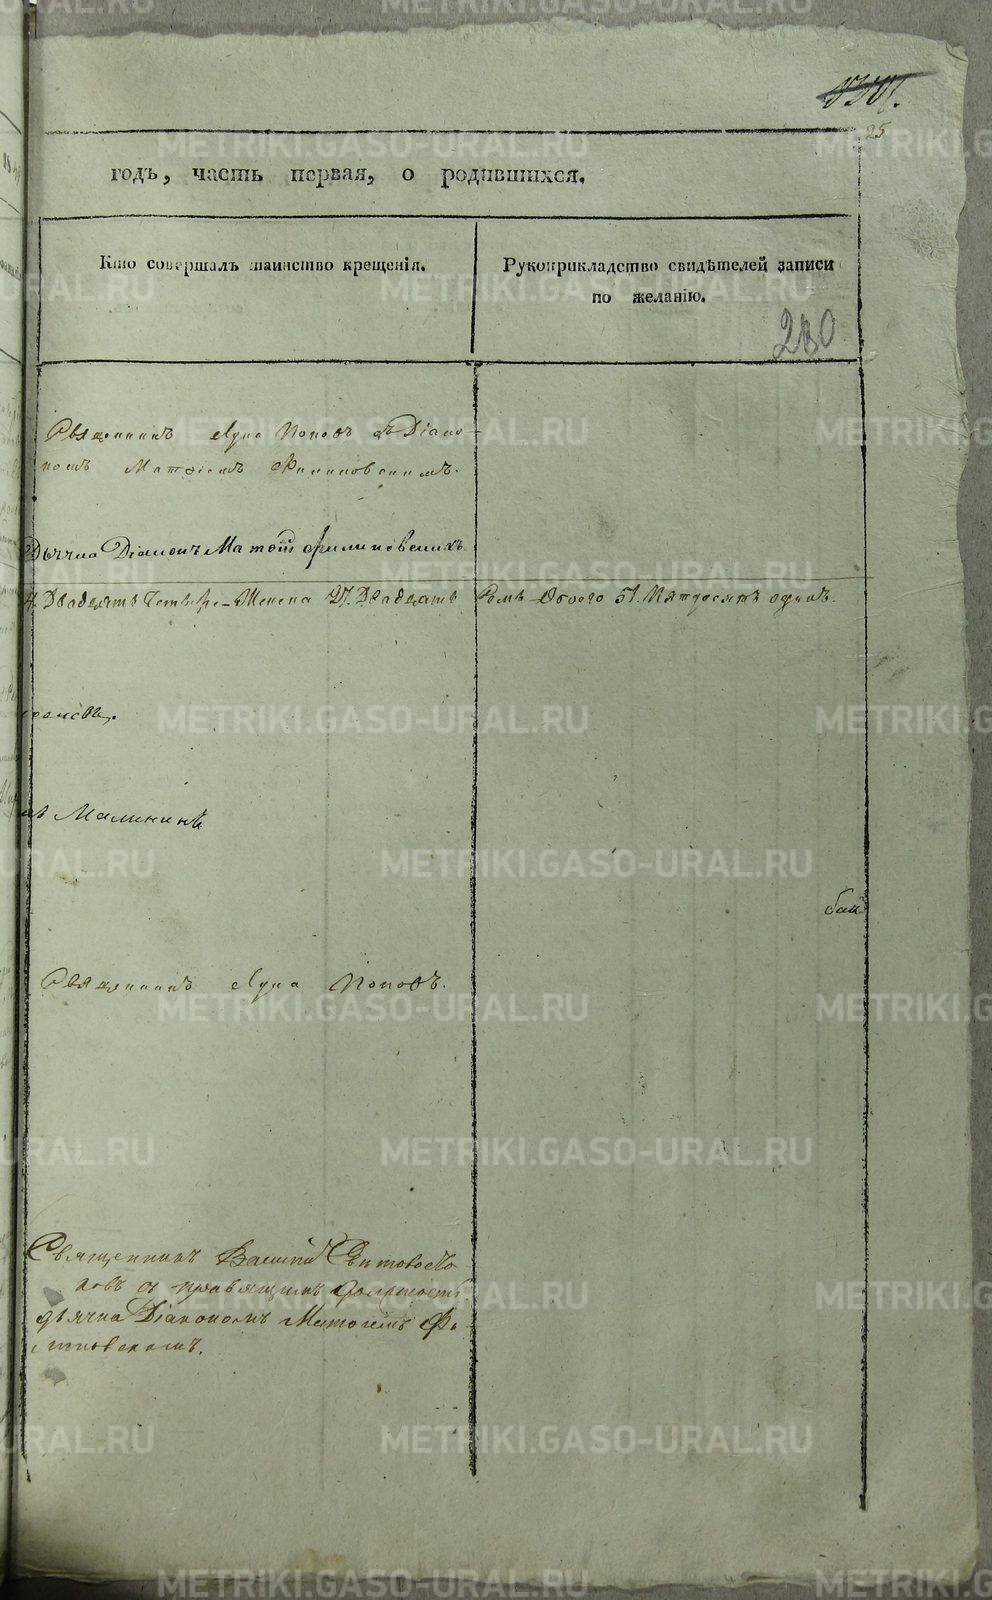 25
годъ, часть первая, о родившихся.
Кто совершалъ таинство крещенія.
Рукоприкладство свидѣтелей записи
по желанію.
280
Священникъ Лука Поповъ съ Діако-
номъ Матѳіемъ Филиповскимъ.
Дьячка Діаконъ Матѳій Филиповскихъ
Двадцать Четыре - Женска 27. Двадцать Семь - Обоего 51. Пятдесятъ одинъ.
Малининъ
Священникъ Лука Поповъ.
Священникъ Василій
правящимъ должность
дьячка Діакономъ Матѳіемъ Фи-
липовскимъ.
METRIKI.GASO-URAL.RU